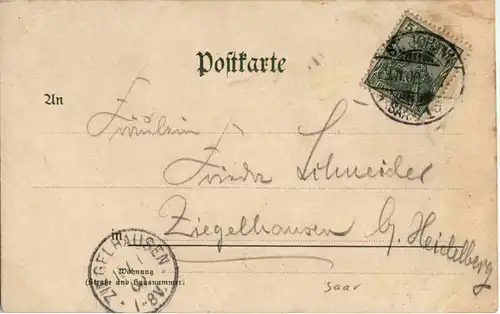 Postkarte
An
Fräulein
Frieda Schneider
Ziegelhausen b/ Heidelberg
in
Wohnung
(Straße und Hausnummer)
ZIEGELHAUSEN
1-8V.
Saar
5
ST. JOHANN
(SAAR)